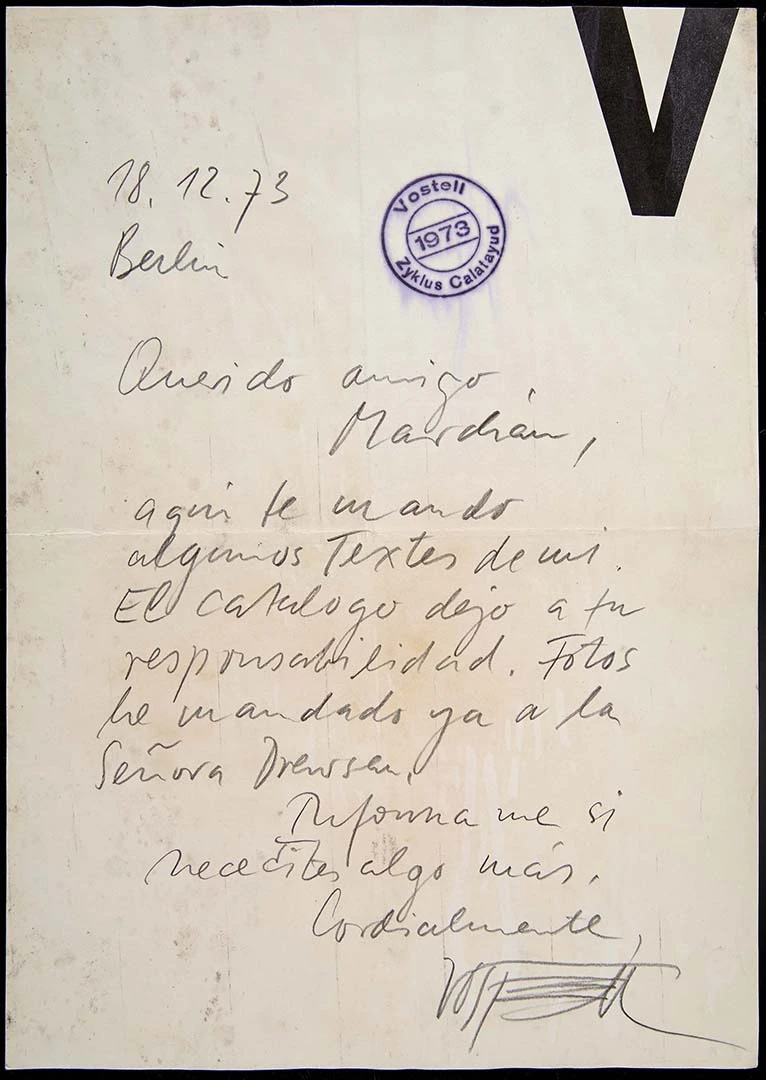 V
18. 12. 73
Berlin
Vostell
1973
Zyklus Calatayud
Querido amigo
Marchán,
aquí te mando
algunos Textes de mi.
El catalogo dejo a tu
responsabilidad. Fotos
he mandado ya a la
Señora Drewsen.
Informa me si
necesites algo más.
Cordialmente,
Vostell